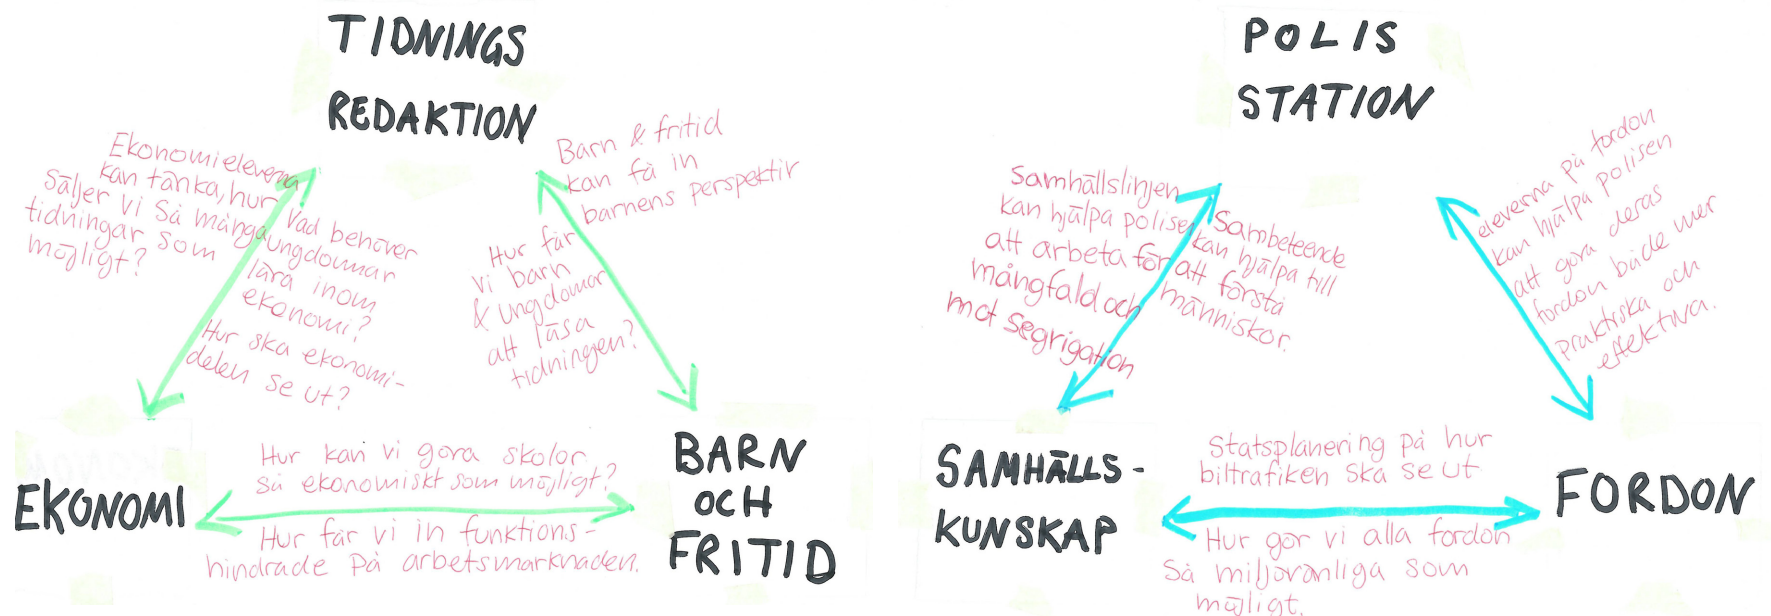 TIDNINGS
REDAKTION
Ekonomieleverna
kan tänka, hur
säljer vi så många
tidningar som
möjligt?
Vad behöver
ungdomar
lära inom
ekonomi?
Hur ska ekonomi-
delen se ut?
Barn & fritid
kan få in
barnens perspektiv
Hur får
vi barn
& ungdomar
att läsa
tidningen?
EKONOMI
Hur kan vi göra skolor
så ekonomiskt som möjligt?
Hur får vi in funktions-
hindrade på arbetsmarknaden.
BARN
OCH
FRITID
POLIS
STATION
Samhällslinjen
kan hjälpa polisen
att arbeta för
mångfald och
mot segrigation
Sambeteende
kan hjälpa till
att förstå
människor.
eleverna på fordon
kan hjälpa polisen
att göra deras
fordon både mer
praktiska och
effektiva.
SAMHÄLLS-
KUNSKAP
Statsplanering på hur
biltrafiken ska se ut
Hur gör vi alla fordon
så miljövänliga som
möjligt.
FORDON